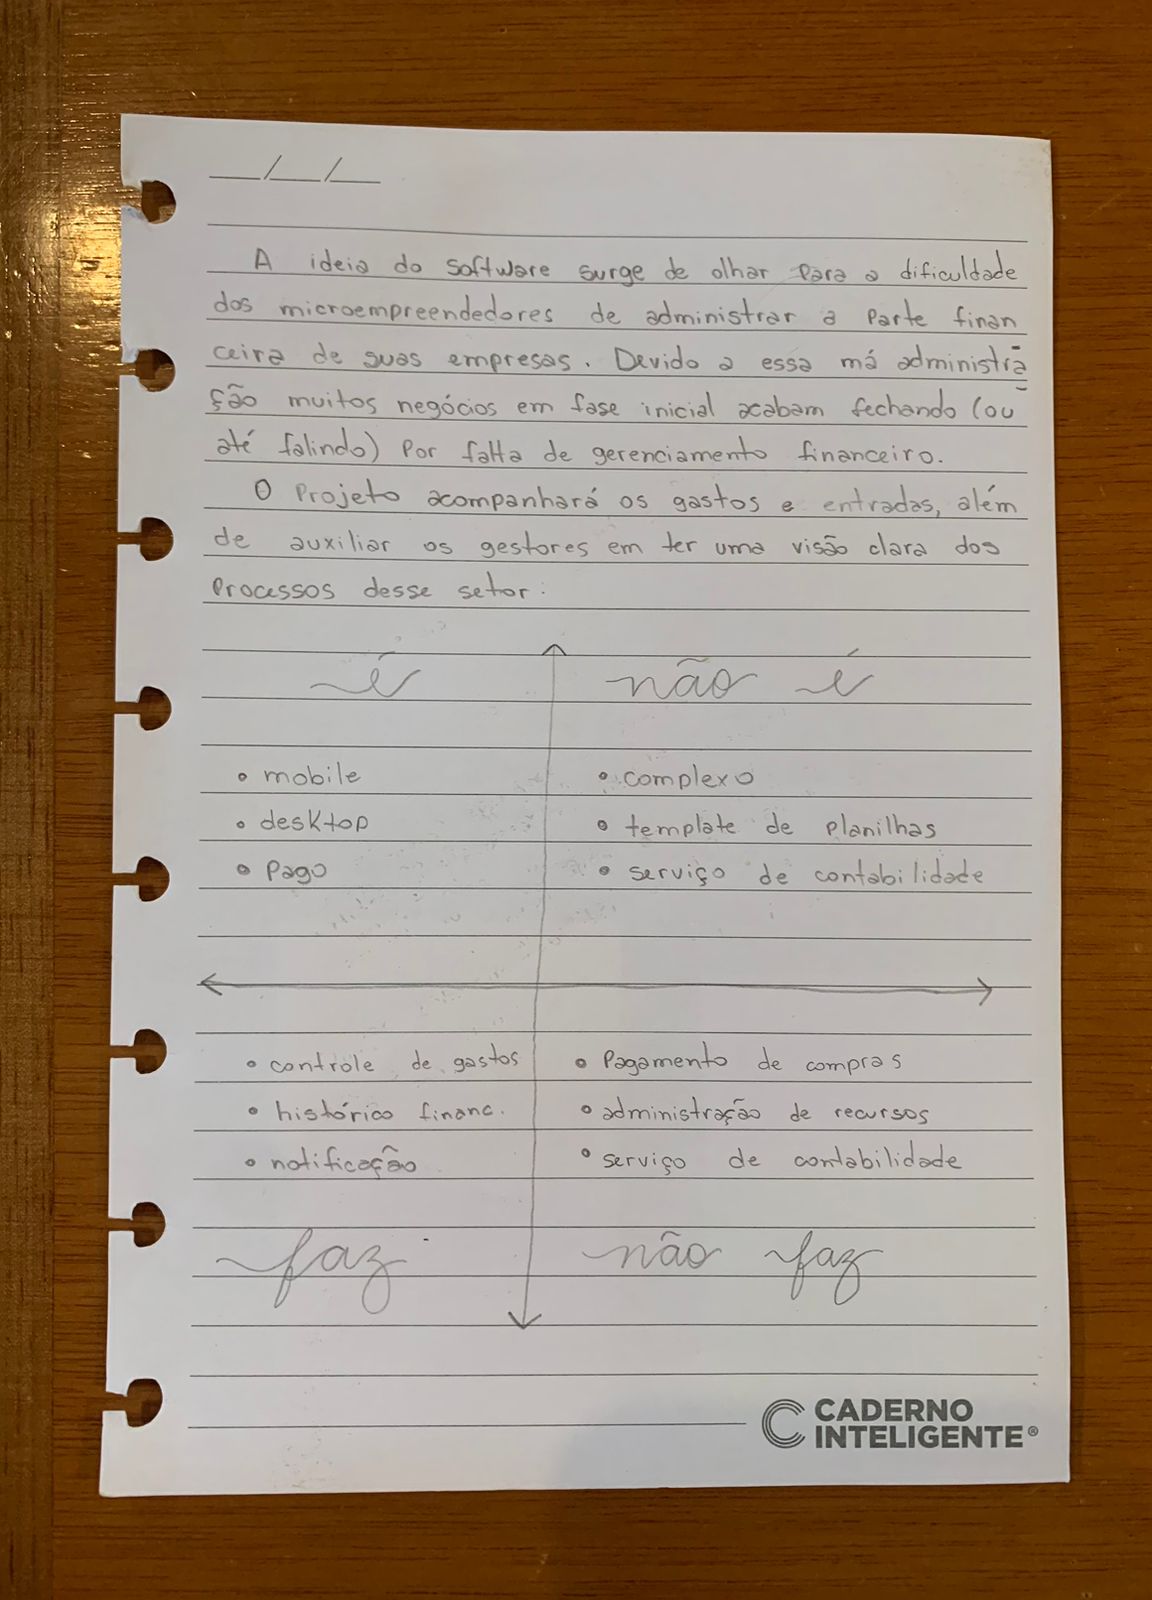 __/__/__
A ideia do software surge de olhar para a dificuldade
dos microempreendedores de administrar a parte finan
ceira de suas empresas. Devido a essa má administra
ção muitos negócios em fase inicial acabam fechando (ou
até falindo) por falta de gerenciamento financeiro.
O projeto acompanhará os gastos e entradas, além
de auxiliar os gestores em ter uma visão clara dos
processos desse setor.
é não é
• mobile • complexo
• desktop • template de planilhas
• pago • serviço de contabilidade
• controle de gastos • pagamento de compras
• histórico financ. • administração de recursos
• notificação • serviço de contabilidade
faz não faz
CADERNO
INTELIGENTE®